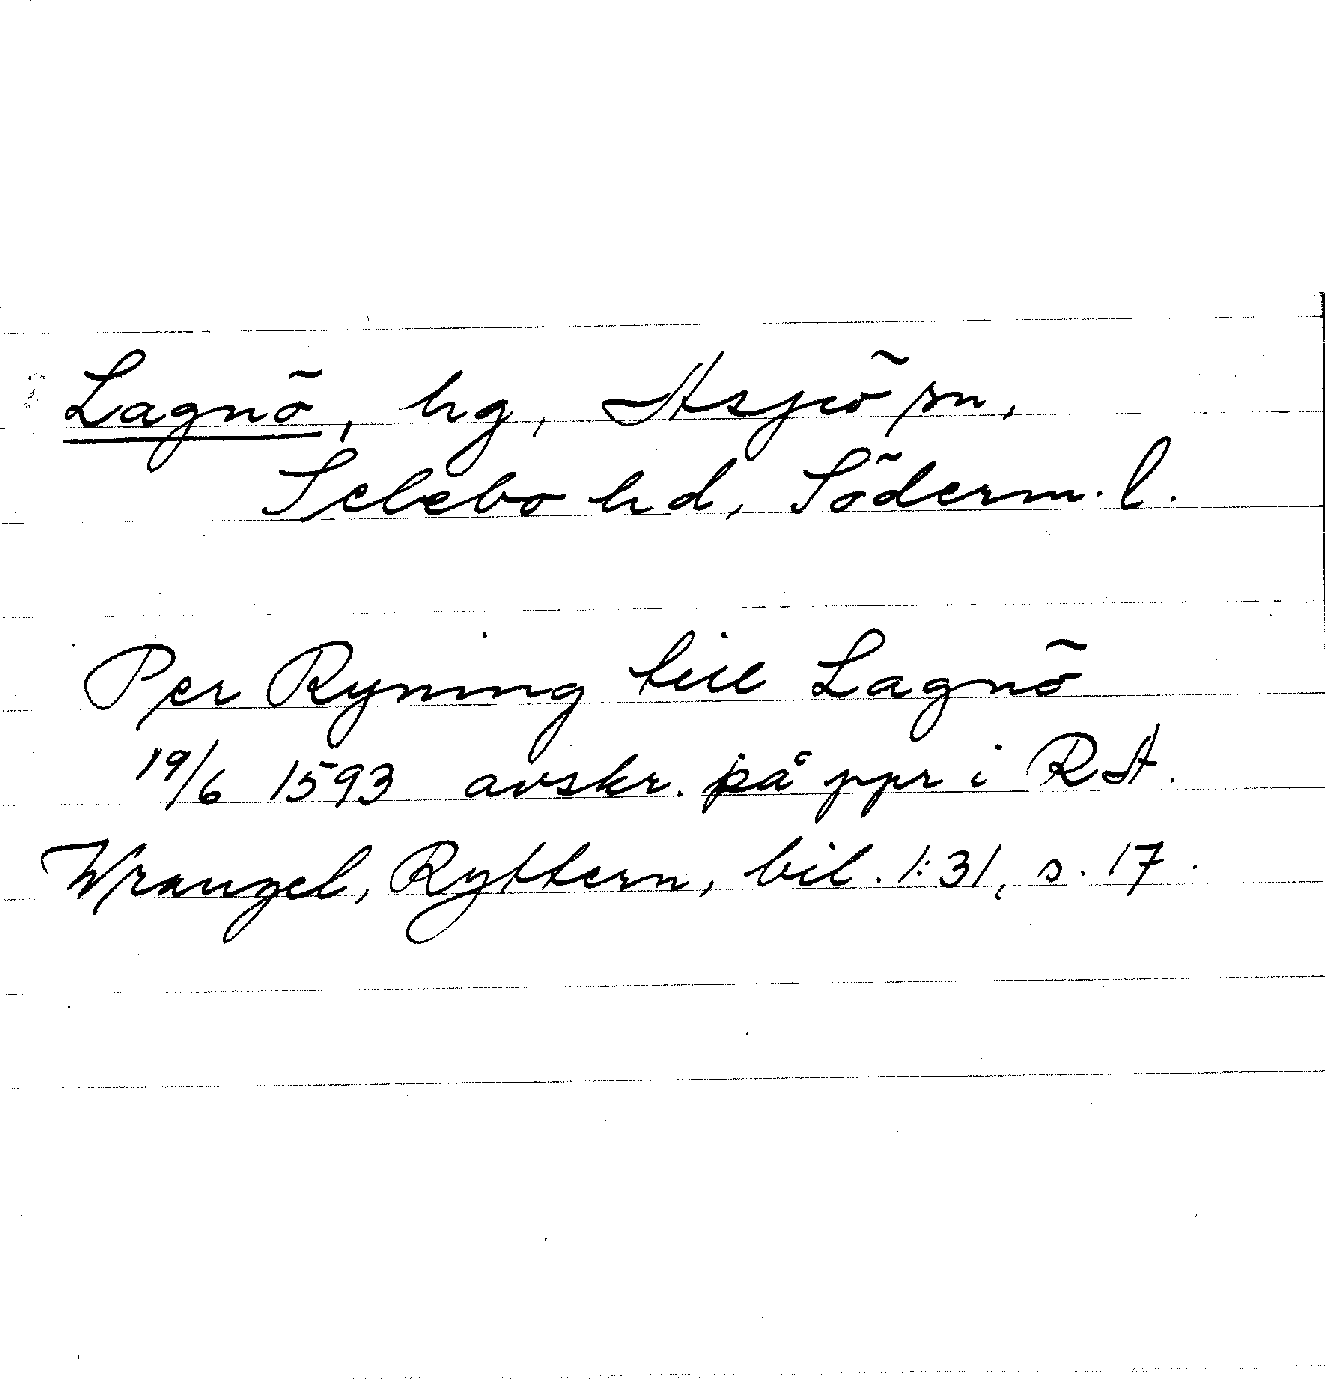 Lagnö, hg, Åsjö sn,
Selebo hd, Söderm. l.
Per Ryning till Lagnö
19/6 1593 avskr. på ppr i RA.
Wrangel, Ryttern, bil. 1:31, s. 17.